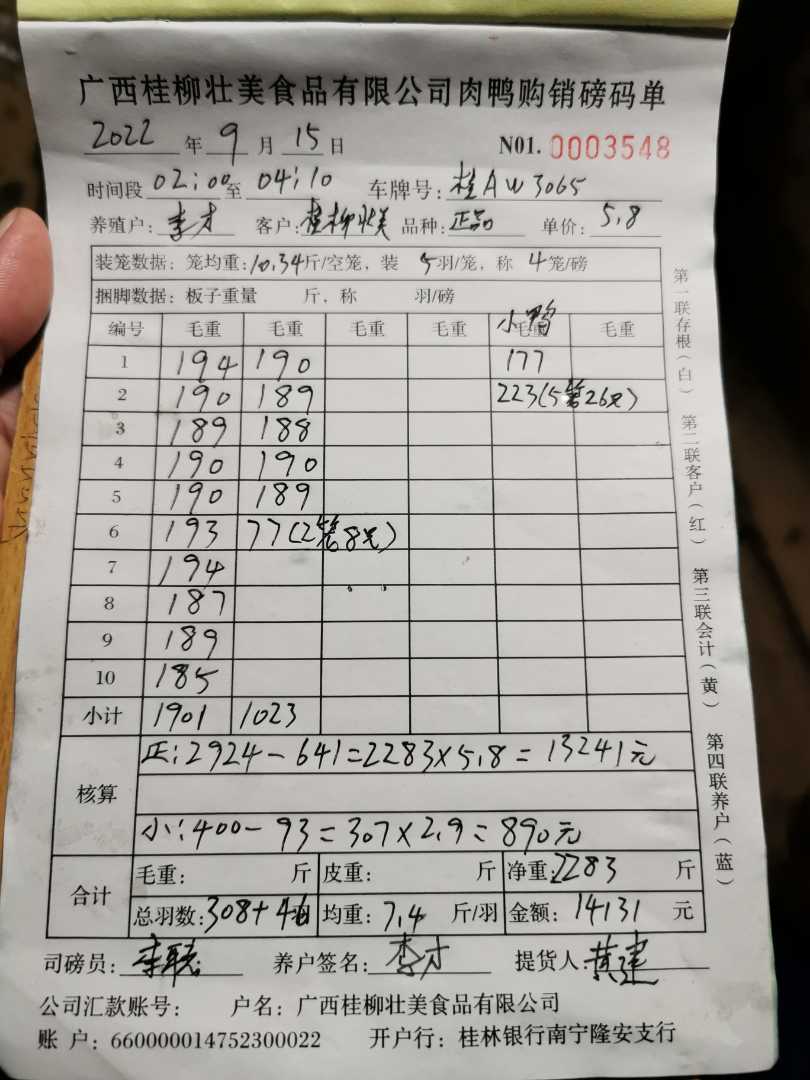 广西桂柳壮美食品有限公司肉鸭购销磅码单
2022 年 9 月 15 日 N01. 0003548
时间段 02:00 至 04:10 车牌号: 桂AW3065
养殖户: 李才 客户: 桂柳壮美 品种: 正品 单价: 5.8
装笼数据: 笼均重: 10.34斤/空笼, 装 5羽/笼, 称 4笼/磅
捆脚数据: 板子重量 斤, 称 羽/磅
编号 毛重 毛重 毛重 毛重 小鸭 毛重 毛重
1 194 190 177
2 190 189 223(5笼26只)
3 189 188
4 190 190
5 190 189
6 193 77(2笼8只)
7 194
8 187
9 189
10 185
小计 1901 1023
核算
正: 2924-641=2283×5.8=13241元
小: 400-93=307×2.9=890元
合计
毛重: 斤 皮重: 斤 净重: 2283 斤
总羽数: 308+ 均重: 7.4 斤/羽 金额: 14131 元
司磅员: 养户签名: 李才 提货人: 黄建
公司汇款账号: 户名: 广西桂柳壮美食品有限公司
账 户: 660000014752300022 开户行: 桂林银行南宁隆安支行
第一联存根(白) 第二联客户(红) 第三联会计(黄) 第四联养户(蓝)